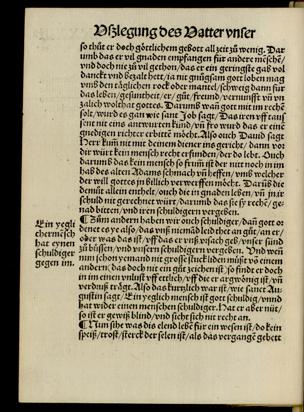 Vßzlegung des Vatter vnser
so thůt er doch götlichem gebott all zeit zů wenig. Dar
umb das er vil gnaden empfangen für andere mẽschẽ/
vnd doch nie zů vil gethon/ das er ein geringste gab vol
danckt vnd bezalt hett/ ia nit gnůgsam gott loben mag
vmb den täglichen rock oder mantel/ schweig dann für
das leben/ gesuntheit/ er/ gůt/ freund/ vernunfft vñ vn
zalich wolthat gottes. Darumb wañ gott mit im rechẽ
solt/ wurd es gan wie sant Job sagt/ Das iren vff tau
sent nit eins antwurten kund/ vñ fro wurd das er eine
gnedigen richter erbitte möcht. Also ouch Dauid sagt
Herr kum nit mit deinem diener ins gericht/ dann vor
dir würt kein mensch recht erfinden/ der do lebt. Ouch
darumb das kein mẽsch so frum ist der nitt noch in im
hab des alten Adams schmach vñ heffen/ vmb welcher
der will gott es in billich verwerffen möcht. Darũb die
demůt allein enthelt/ ouch die in gnaden leben/ vñ in ir
schuld nit gerechnet würt/ darumb das sie sy rechẽ/ ge-
nad bitten/ vnd iren schuldigern vergeben.
¶Zům andern haben wir ouch schuldiger/ dañ gott or
denet es ye also/ das vnß niemãd leid thet an gůt/ an er/
oder was das ist/ vff das er vnß vrsach geb/ vnser sünd
zů büssen/ vnd vnsern schuldigern vergeben. Vnd weñ
nun schon yemand nit grosse stuck liden můst võ einem
andern/ das doch nit ein gůt zeichen ist/ so findt er doch
in im einen vnlust vff etlich/ vff die er argwönig ist/ vñ
verdruß tragt. Also das kurtzlich war ist/ wie sanct Au-
gustin sagt/ Ein yeglich mensch ist gott schuldig/ vnnd
hat wider einen menschen schuldiger. Hat er aber nitt/
so ist er gewiß blind/ vnd sicht sich nit recht an.
¶Nun sihe was dis elend lebẽ für ein wesen ist/ do kein
speiß/ trost/ sterck der selen ist/ als das vergangẽ gebett
Ein yegli
cher mẽsch
hat eynen
schuldiger
gegen im.